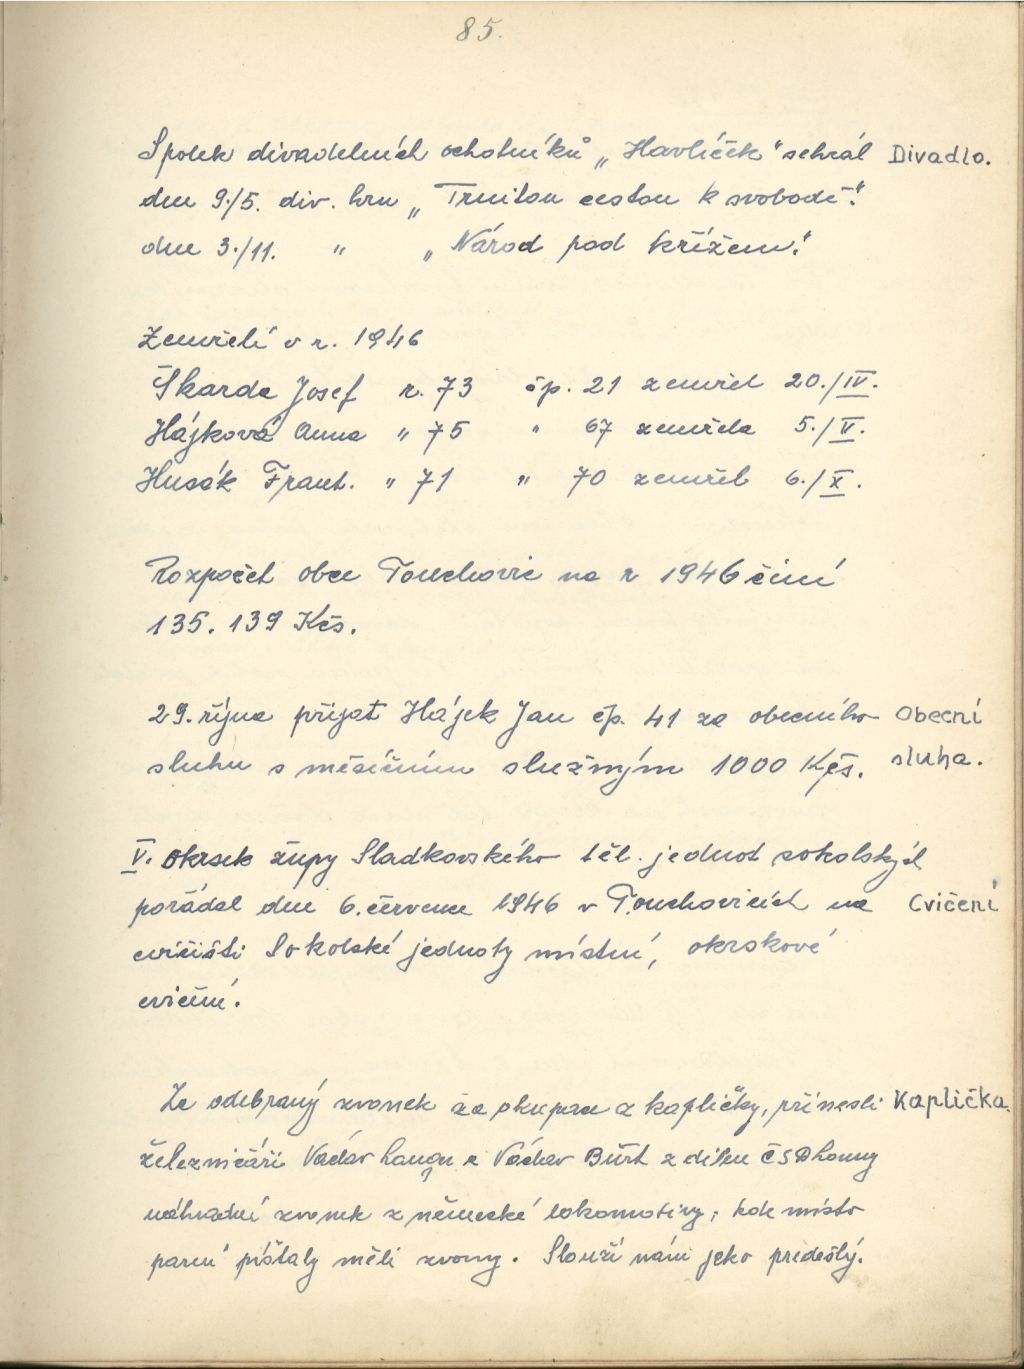 85.
Spolek divadelních ochotníků „Havlíček“ sehrál Divadlo.
dne 9./5. div. hru „Trnitou cestou k svobodě.“
dne 3./11. " „Národ pod křížem.“
Zemřelí v r. 1946
Škarda Josef r. 73 čp. 21 zemřel 20./IV.
Hájková Anna " 75 " 67 zemřela 5./V.
Husák Frant. " 71 " 70 zemřel 6./X.
Rozpočet obce Touchovic na r 1946 činí
135.139 Kčs.
29. října přijat Hájek Jan čp. 41 za obecního Obecní
sluhu s měsíčním služným 1000 Kčs. sluha.
V. Okrsek župy Sladkovského těl. jednot sokolských
pořádal dne 6. července 1946 v Touchovicích na Cvičení
cvičišti Sokolské jednoty místní, okrskové
cvičení.
Za odebraný zvonek za okupace z kapličky, přinesli Kaplička.
železničáři Václav a Václav Bürt z dílen ČSD Louny
náhradní zvonek z německé lokomotivy, kde místo
parní píšťaly měli zvony. Slouží nám jako předešlý.